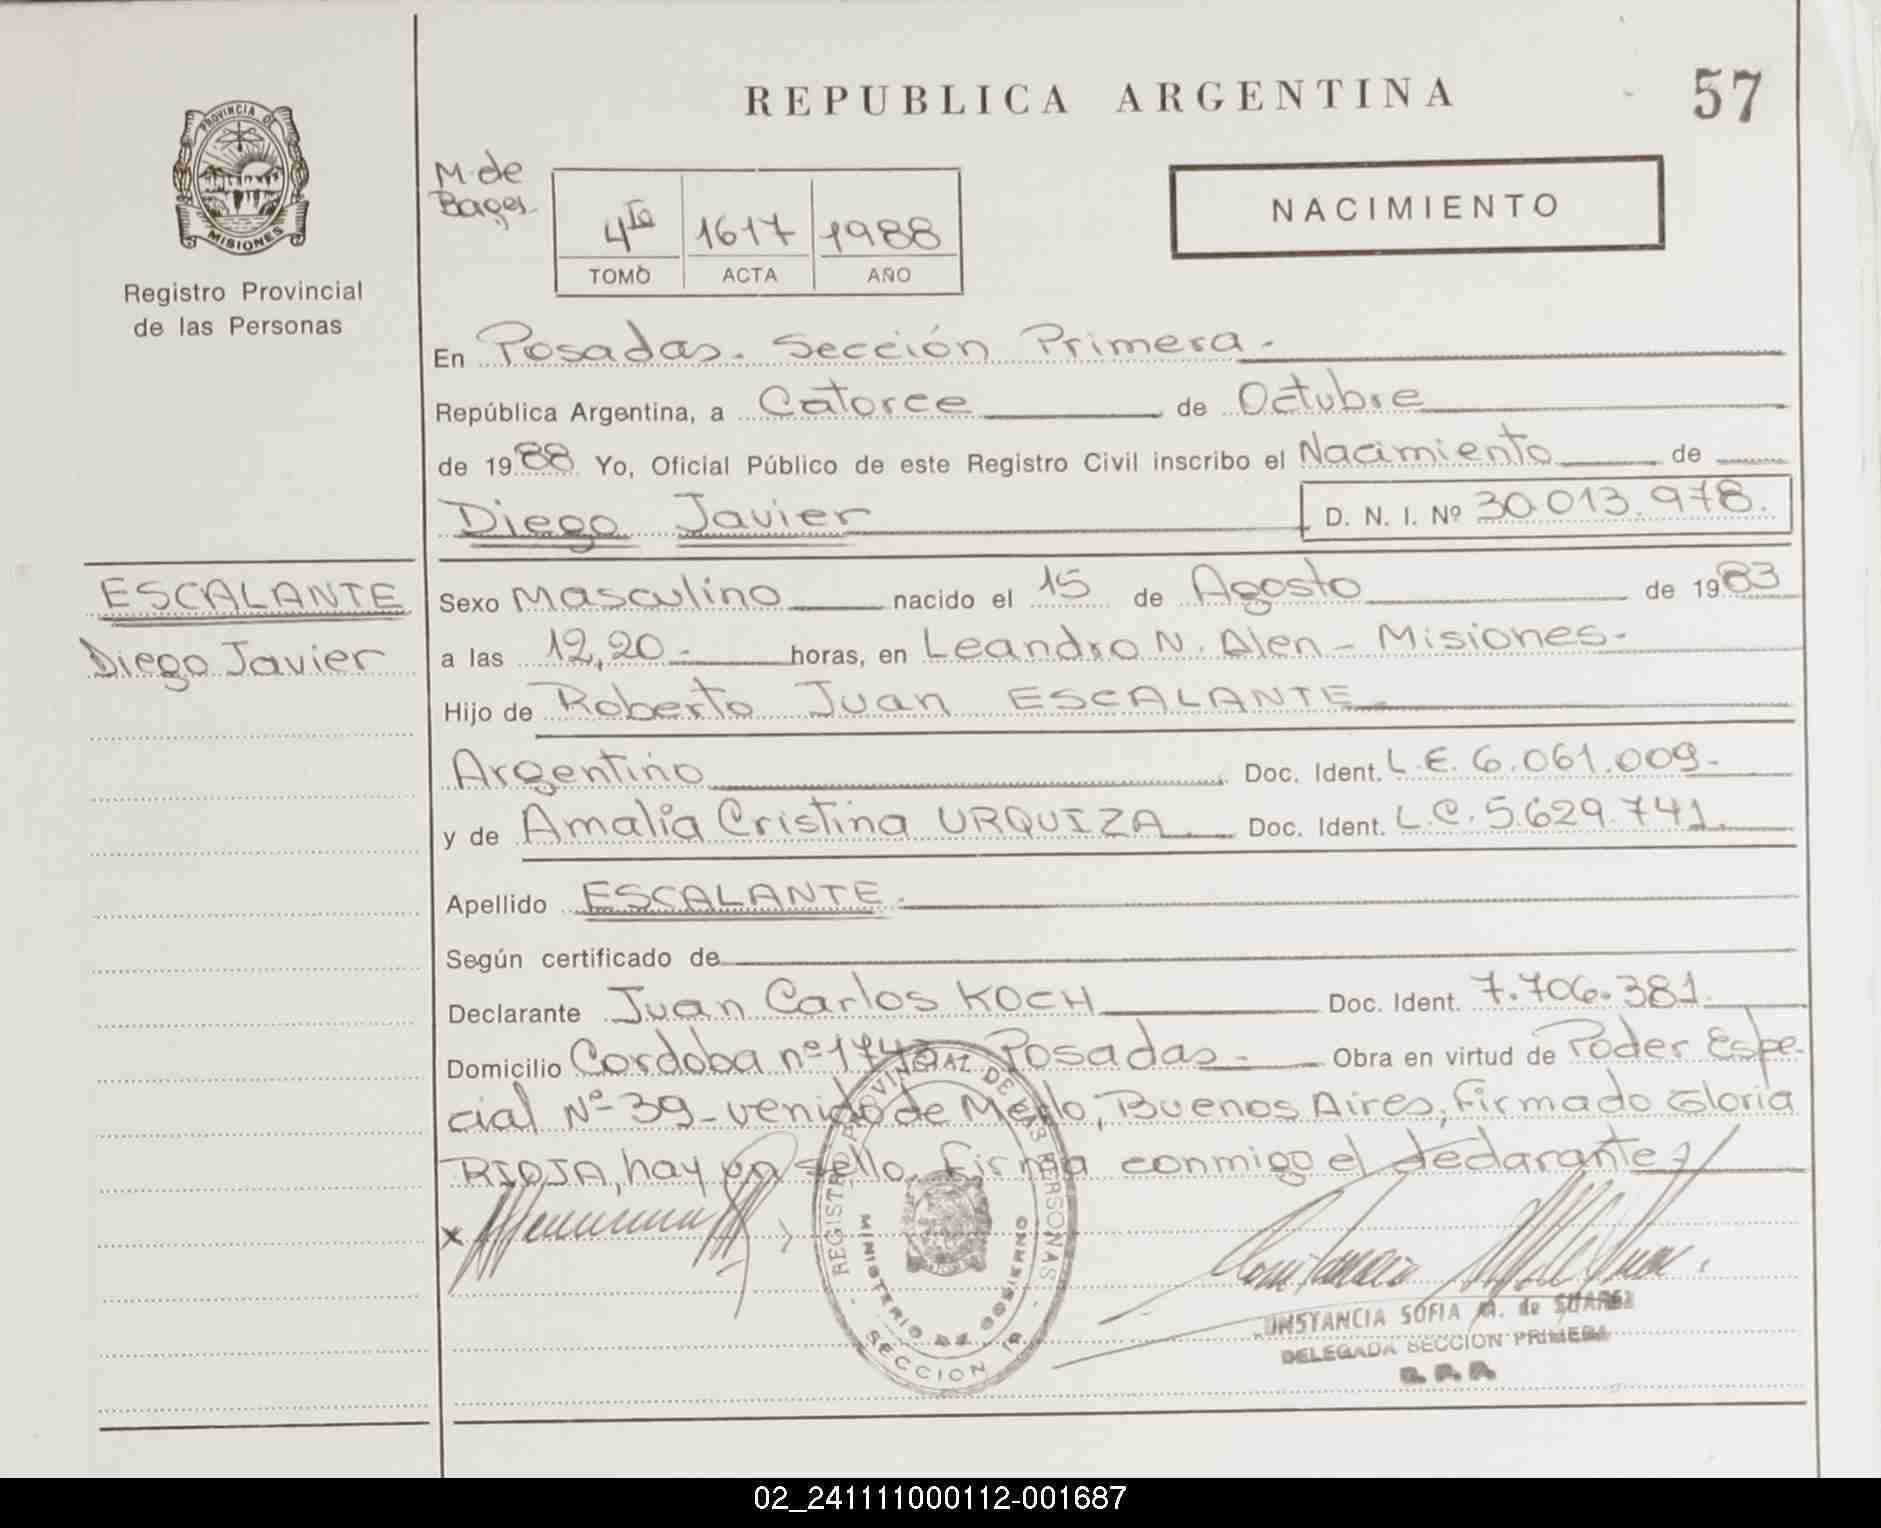 REPUBLICA ARGENTINA
57
PROVINCIA DE
MISIONES
Registro Provincial
de las Personas
M. de
Bages
4to 1617 1988
TOMO ACTA AÑO
NACIMIENTO
En Posadas. Sección Primera.
República Argentina, a Catorce de Octubre
de 1988 Yo, Oficial Público de este Registro Civil inscribo el Nacimiento de
Diego Javier D. N. I. Nº 30.013.978.
ESCALANTE
Diego Javier
Sexo Masculino nacido el 15 de Agosto de 1983
a las 12,20.- horas, en Leandro N. Alen - Misiones.
Hijo de Roberto Juan ESCALANTE.
Argentino Doc. Ident. L.E. 6.061.009.-
y de Amalia Cristina URQUIZA Doc. Ident. L.C. 5.629.741.
Apellido ESCALANTE.
Según certificado de
Declarante Juan Carlos KOCH Doc. Ident. 7.706.381.
Domicilio Cordoba nº Posadas.- Obra en virtud de Poder Espe-
cial Nº 39 - venido de Merlo, Buenos Aires, firmado Gloria
RIOJA, hay un sello. Firma conmigo el declarante
x
REGISTRO PROVINCIAL DE LAS PERSONAS
MINISTERIO DE GOBIERNO
SECCION 1ª
CONSTANCIA SOFIA M. de SUAREZ
DELEGADA SECCION PRIMERA
R. P. P.
02_241111000112-001687